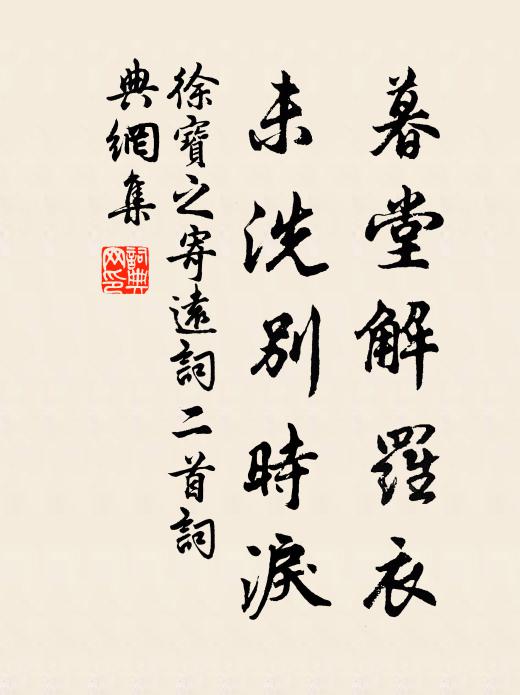 暮堂解羅衣
未洗別時淚
徐寶之寄遠詞二首詞
典網集
詞典網印